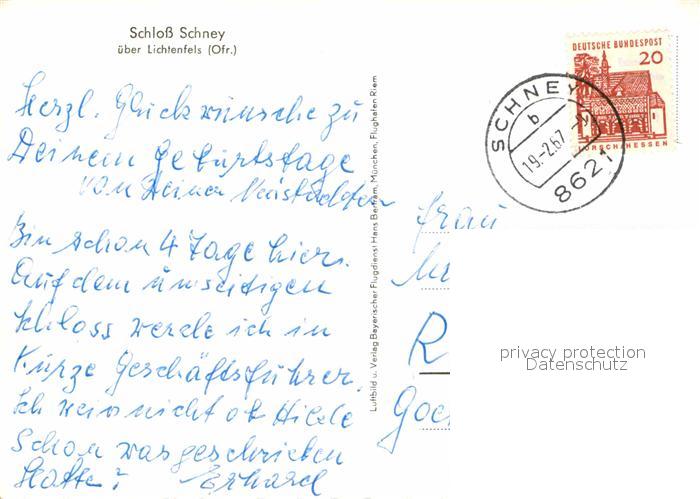 Schloß Schney
über Lichtenfels (Ofr.)
Herzl. Glückwünsche zu
Deinem Geburtstage
von Deiner
Bin schon 4 Tage hier.
Auf dem umseitigen
Schloss werde ich in
Kürze Geschäftsführer.
Ich weis nicht ob Hilde
Schon was geschrieben
Hatte? Erhard
Luftbild u. Verlag Bayerischer Flugdienst Hans Bertram, München, Flughafen Riem
DEUTSCHE BUNDESPOST
20
LORSCH/HESSEN
SCHNEY
b
19.-2.67
8621
Frau
R
privacy protection
Datenschutz